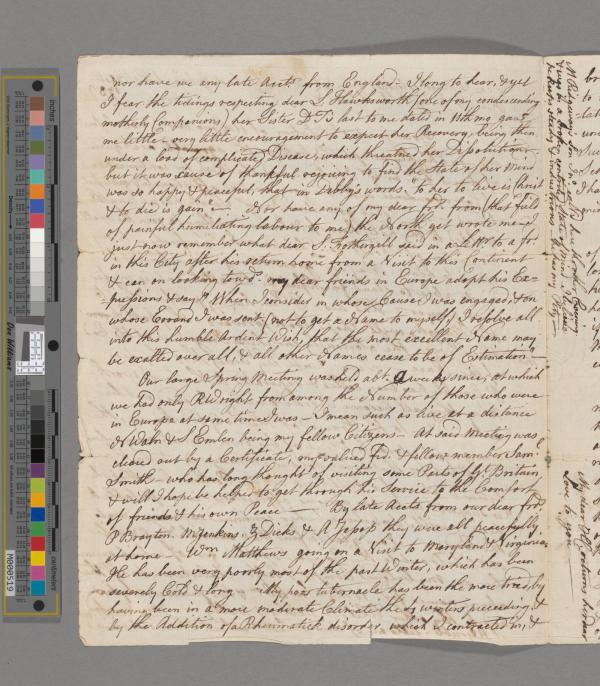 nor have we any late Accts. from England - I long to hear, & yet
I fear the tidings respecting dear S. Hawksworth (one of my condescending
motherly Companions) her Sister D Bs last to me dated in 11th mo. gave
me little - very little encouragement to expect her Recovery, being then
under a load of complicated Disease, which threatned her Disolution -
but it was cause of thankful rejoicing to find the State of her Mind
was so happy & peaceful, that in Debby's words, "to her to live is Christ
& to die is gain" - Nor have any of my dear frds. from (that field
of painful humiliating labour to me) the North yet wrote me - I
just now remember what dear S. Fothergill said in a Letr. to a frd.
in this City after his return home from a Visit to this Continent
& can on looking towd. my dear friends in Europe adopt his Ex-
-pressions & say "When I consider in whose Cause I was engaged, & on
whose Errand I was sent (not to get a Name to myself) I resolve all
into this humble Ardent Wish, that the most excellent Name may
be exalted over all, & all other Names cease to be of Estimation -
Our large Spring Meeting was held abt. a week since, at which
we had only R Wright from among the Number of those who were
in Europe at same time I was - I mean such as live at a distance
N Waln & S Emlen being my fellow Citizens - At said Meeting was
cleared out by a Certificate, my valued frd. & fellow member Saml.
Smith - who has long thought of visiting some Parts of Gt Britain
& will I hope be helped to get through his Service to the Comfort
of friends & his own Peace - By late Accts from our dear frds.
P Brayton. M Jenkins, Z Dicks & R Jessop they were all peacefully
at home - Wm. Matthews going on a Visit to Maryland & Virginia
He has been very poorly most of the past Winter, which has been
severely Cold & long - My poor tabernacle has been the more tried, by
having been in a more moderate Climate the winters preceeding, &
by the Addition of a Rheumatick disorder, which I contracted in, &
M Ridgway's Son
Love to you
inches
centimeters
Don Williams
M000519